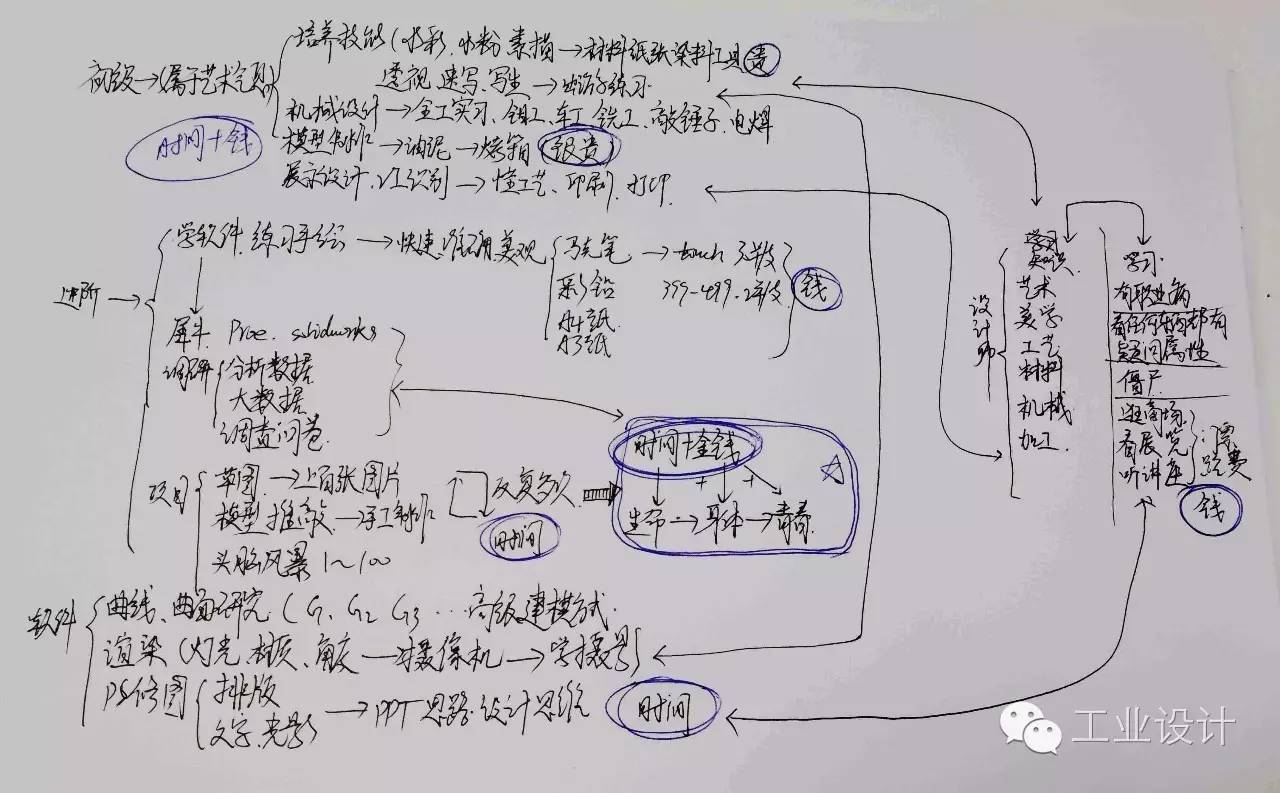 初级→(属于艺术气息)
培养技能(水彩、水粉、素描→材料纸张染料工具 贵
透视、速写、写生→出治学练习
机械设计→金工实习、钳工、车工、铣工、敲锤子、电焊
时间+钱
模型制作→油泥→烤箱 很贵
展示设计、VI识别→懂工艺、印刷、打印
进阶→
学软件、练习手绘→快速、准确、美观
马克笔→touch 3代
彩铅 399-499、2年/支
A4纸 钱
A3纸
犀牛、Proe、solidworks
调研 分析数据
大数据
调查问卷
项目 草图→上百张图片
模型推敲→手工制作
头脑风暴 1~100
反复多次
时间
时间+金钱
生命→身体→青春
设计师
学习知识
艺术
美学
工艺
材料
机械
加工
学习
有职业病
看任何东西都有
疑问属性
僵尸
逛商场
看展览
听讲座
票
路费
钱
软件
曲线、曲面研究(G1、G2 G3…高级建模方式
渲染(灯光、材质、角度→摄像机→学摄影)
PS修图 排版
文字、光影
→PPT思路、设计思维 时间
工业设计